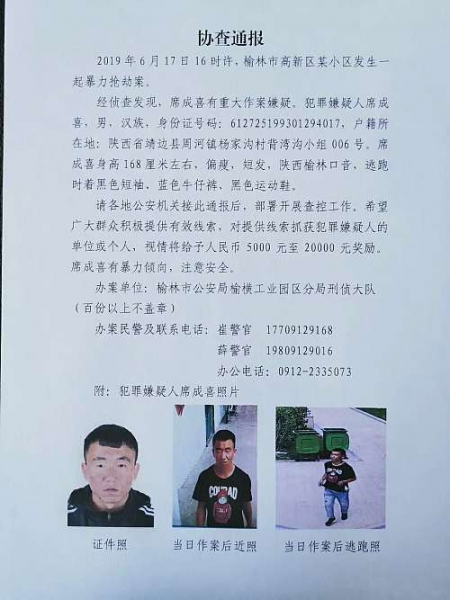 协查通报
2019年6月17日16时许，榆林市高新区某小区发生一
起暴力抢劫案。
经侦查发现，席成喜有重大作案嫌疑。犯罪嫌疑人席成
喜，男，汉族，身份证号码：612725199301294017，户籍所
在地：陕西省靖边县周河镇杨家沟村背湾沟小组006号。席
成喜身高168厘米左右，偏瘦，短发，陕西榆林口音，逃跑
时着黑色短袖、蓝色牛仔裤、黑色运动鞋。
请各地公安机关接此通报后，部署开展查控工作。希望
广大群众积极提供有效线索，对提供线索抓获犯罪嫌疑人的
单位或个人，视情将给予人民币5000元至20000元奖励。
席成喜有暴力倾向，注意安全。
办案单位：榆林市公安局榆横工业园区分局刑侦大队
（百份以上不盖章）
办案民警及联系电话：崔警官 17709129168
薛警官 19809129016
办公电话：0912-2335073
附：犯罪嫌疑人席成喜照片
证件照 当日作案后近照 当日作案后逃跑照